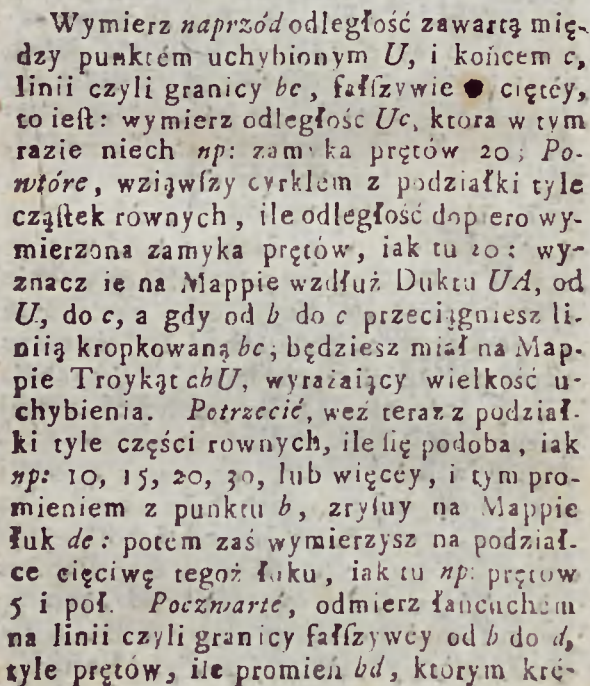 Wymierz naprzód odległość zawartą mię-
dzy punktem uchybionym U, i końcem c,
linii czyli granicy bc, fałſzywie ciętéy,
to ieſt: wymierz odległość Uc, ktora w tym
razie niech np: zamyka prętów 20; Po-
wtóre, wziąwſzy cyrklem z podziałki tyle
cząſtek rownych, ile odległość dopiero wy-
mierzona zamyka prętów, iak tu 20: wy-
znacz ie na Mappie wzdłuż Duktu UA, od
U, do c, a gdy od b do c przeciągniesz li-
niią kropkowaną bc, będziesz miał na Map-
pie Troykąt cbU, wyrażaiący wielkość u-
chybienia. Potrzecié, weź teraz z podział-
ki tyle części rownych, ile ſię podoba, iak
np: 10, 15, 20, 30, lub więcey, i tym pro-
mieniem z punktu b, zryſuy na Mappie
łuk de: potem zaś wymierzysz na podział-
ce cięciwę tegoż łuku, iak tu np: prętow
5 i poł. Poczwarté, odmierz łańcuchem
na linii czyli granicy fałſzywey od b do d,
tyle prętów, ile promień bd, którym kré-